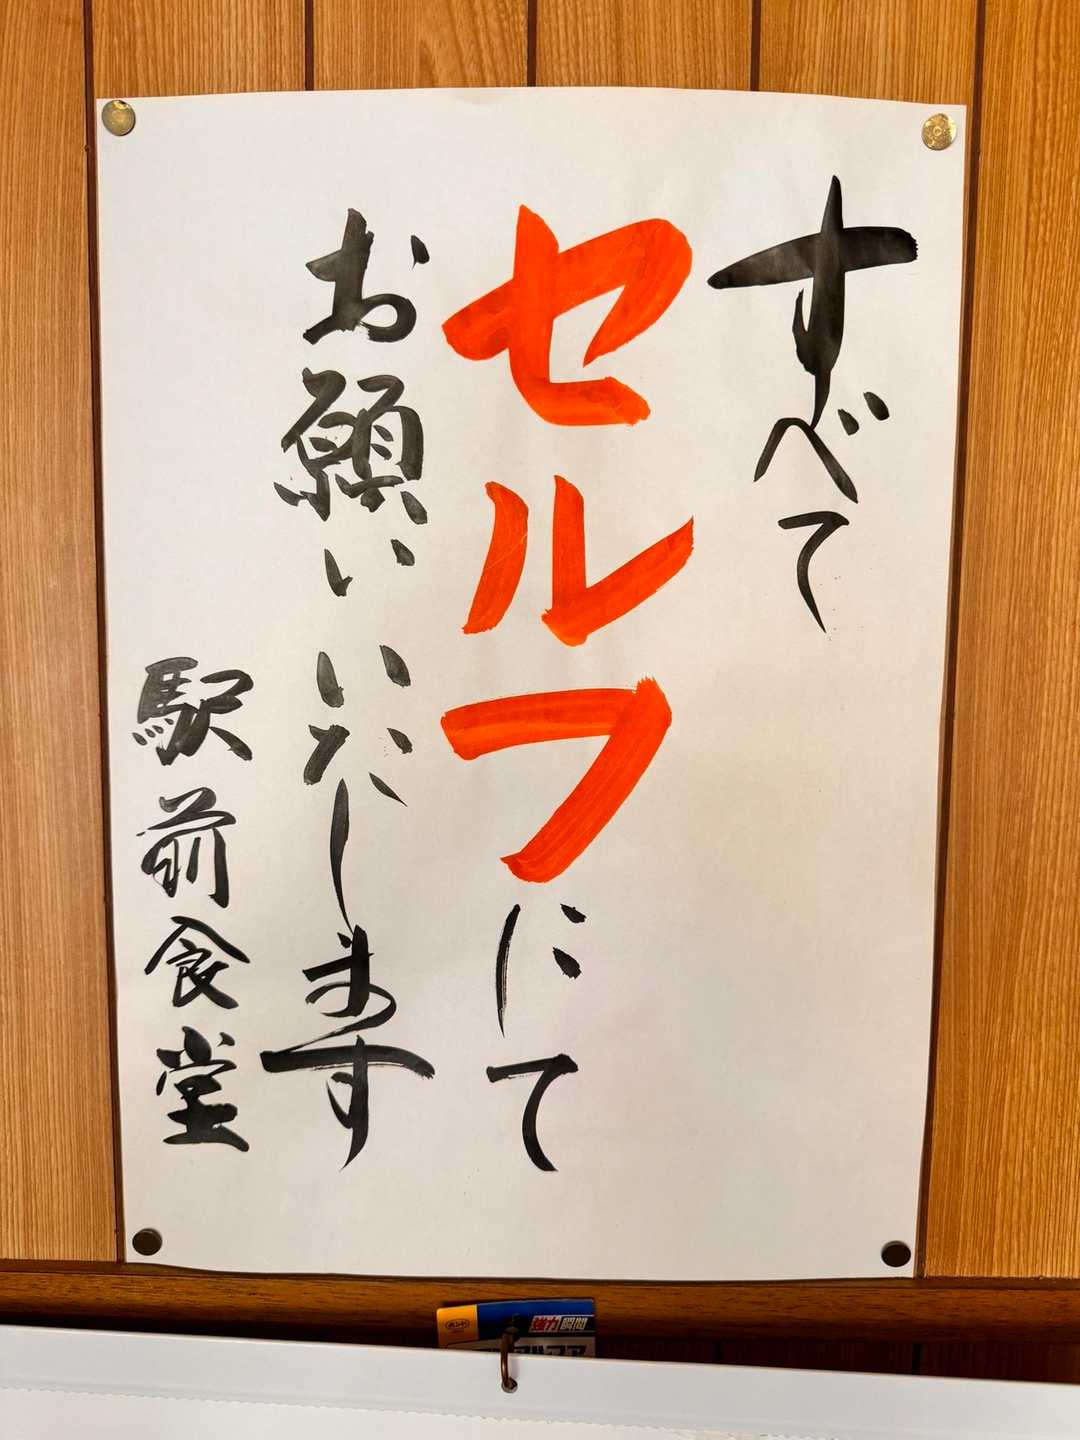 すべて
セルフにて
お願いいたします
駅前食堂
強力瞬間